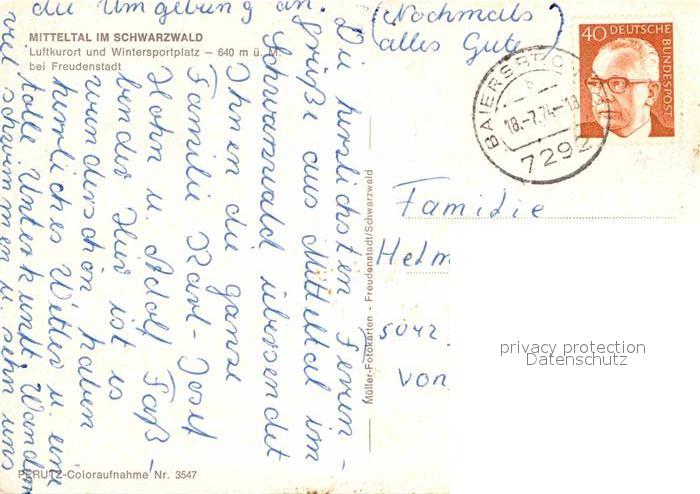 MITTELTAL IM SCHWARZWALD
Luftkurort und Wintersportplatz – 640 m ü. M.
bei Freudenstadt
Die herzlichsten Ferien-
grüße aus Mitteltal im
Schwarzwald übersendet
Ihnen die ganze
Familie Karl-Josef
Hohn u. Adolf Faß-
bender Hier ist es
wunderschön haben
herrliches Wetter u eine
tolle Unterkunft Wandern
viel schwimmen u. sehn uns
die Umgebung an.
(Nochmals
alles Gute)
40 DEUTSCHE BUNDESPOST
BAIERSBRO
b
18.-7.74-18
7292
Familie
Helm
5042
Von
Müller-Fotokarten - Freudenstadt/Schwarzwald
PERUTZ-Coloraufnahme Nr. 3547
privacy protection
Datenschutz